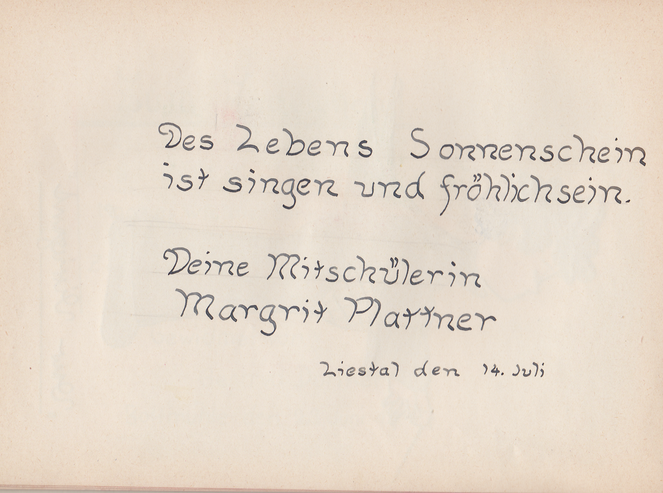 Des Lebens Sonnenschein
ist singen und fröhlichsein.
Deine Mitschülerin
Margrit Plattner
Liestal den 14. Juli